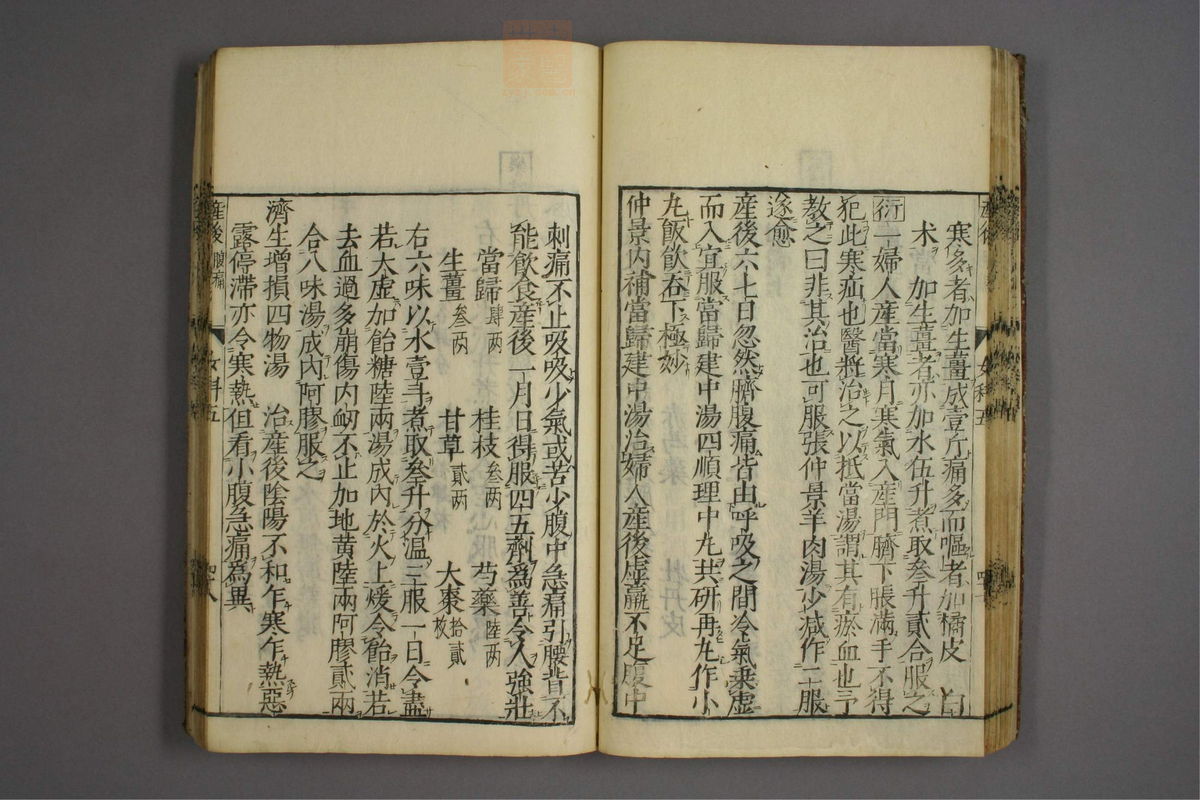 寒多者加生薑成壹斤痛多而嘔者加橘皮 白
术 加生薑者亦加水伍升煮取叄升貳合服之
衍一婦人產當寒月寒氣入產門臍下脹滿手不得
犯此寒疝也醫將治之以抵當湯謂其有瘀血也予
教之曰非其治也可服張仲景羊肉湯少減作二服
遂愈
產後六七日忽然臍腹痛皆由呼吸之間冷氣乘虛
而入宜服當歸建中湯四順理中丸共研再丸作小
丸飯飲吞下極妙
仲景內補當歸建中湯治婦人產後虛羸不足腹中
產後 女科五
刺痛不止吸吸少氣或苦少腹中急痛引腰背不
能飲食產後一月日得服四五劑為善令人強壯
當歸肆两 桂枝叄两 芍藥陸两
生薑叄两 甘草貳两 大棗拾貳枚
右六味以水壹斗煮取叄升分溫三服一日令盡
若大虛加飴糖陸兩湯成內於火上煖令飴消若
去血過多崩傷內衂不止加地黃陸兩阿膠貳兩
合八味湯成內阿膠服之
濟生增損四物湯 治產後陰陽不和乍寒乍熱惡
露停滯亦令寒熱但看小腹急痛為異
產後腹痛 女科五